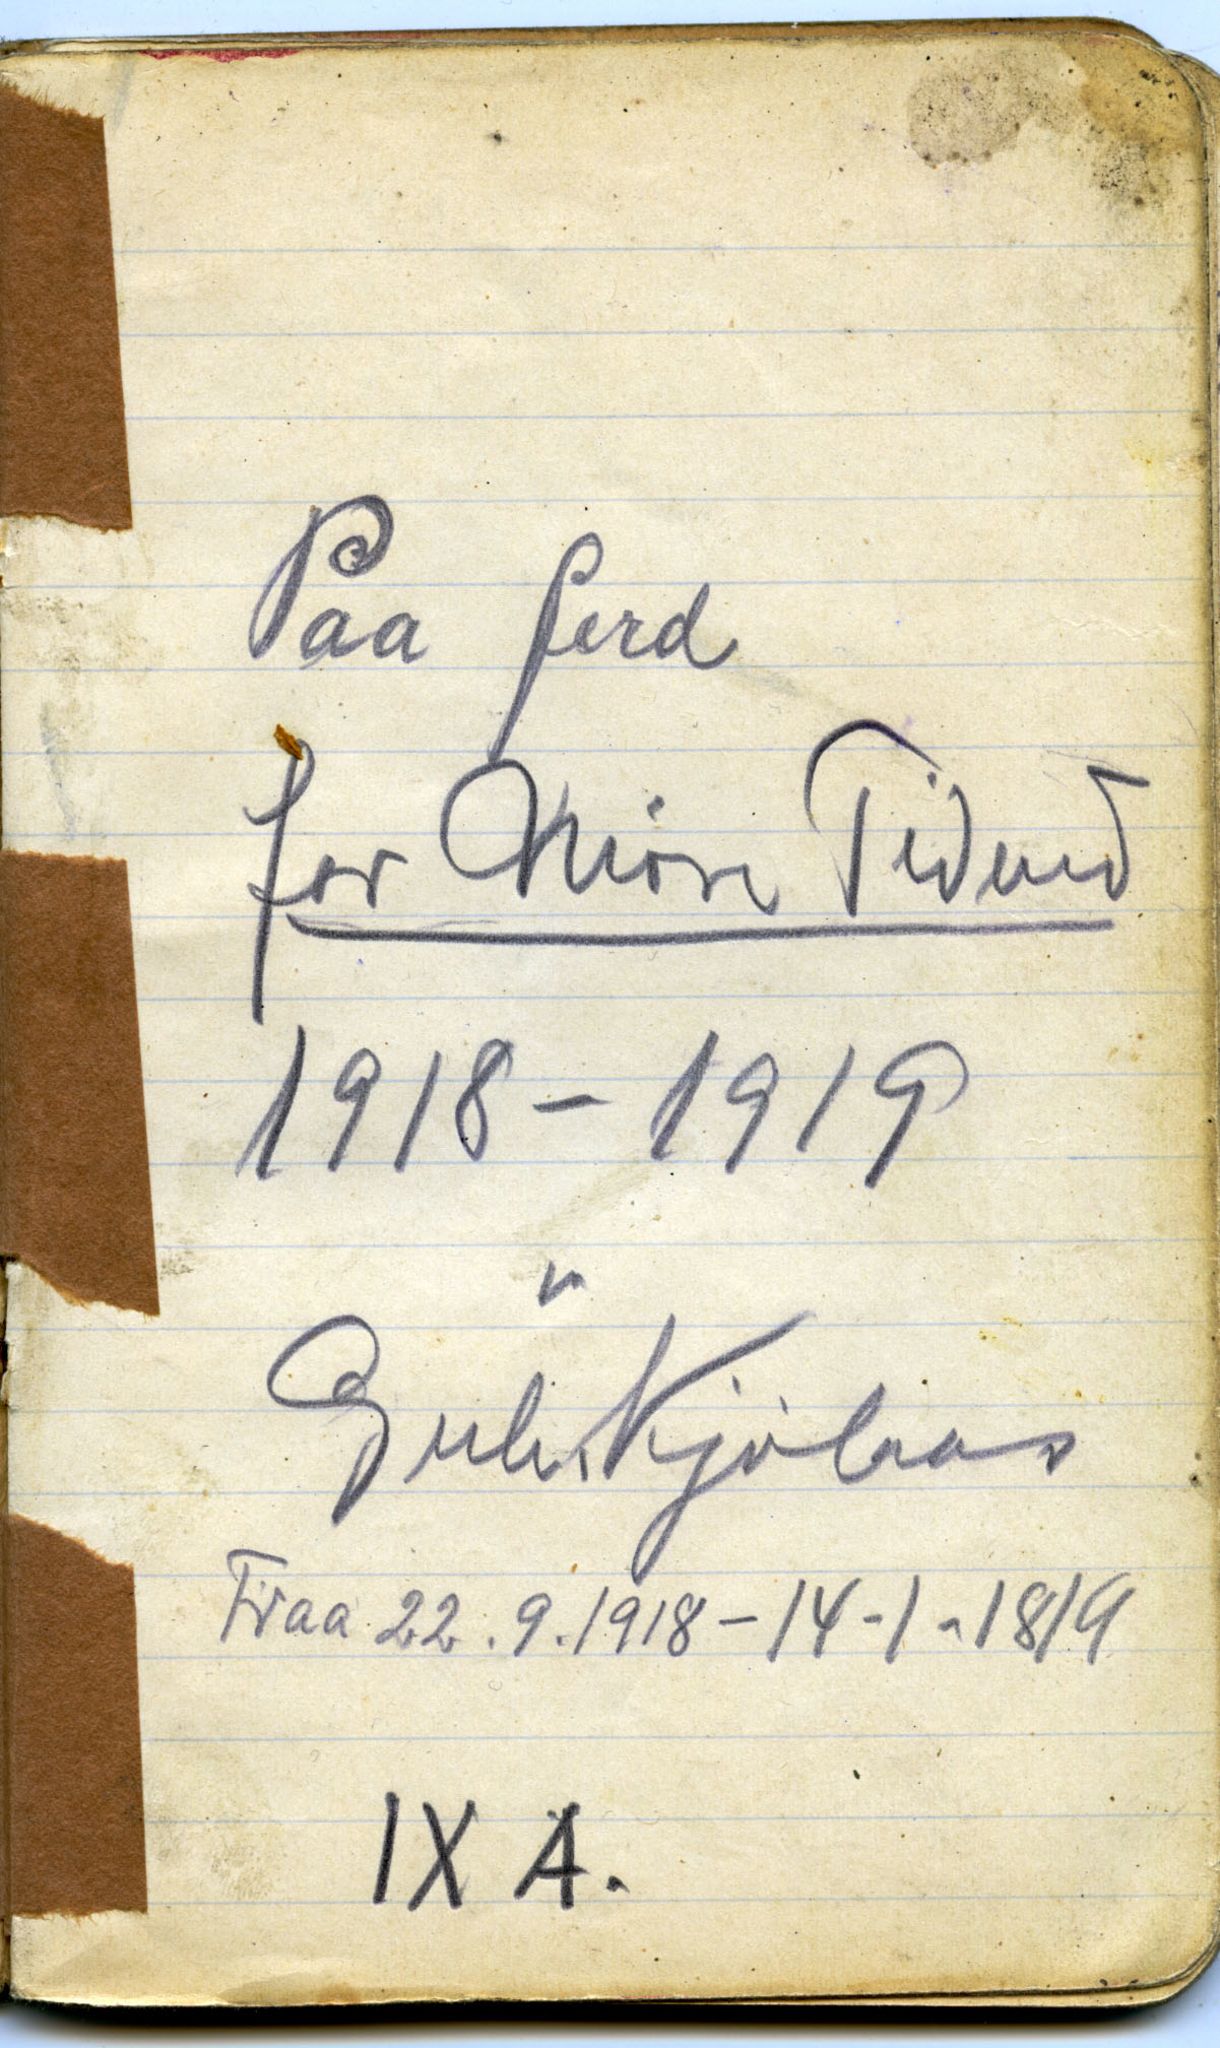 Paa ferd
for Möre Tidend
1918 – 1919
v
Kjölaas
Fraa 22.9.1918 – 14-1-1819
IX A.